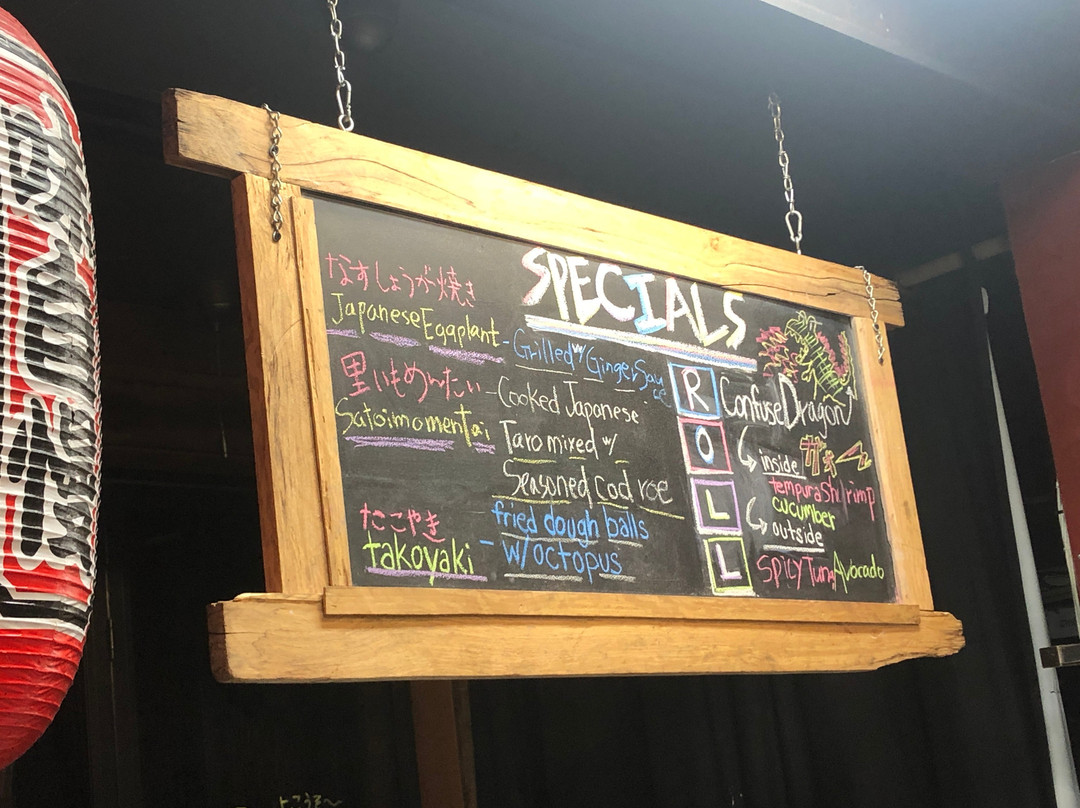 SPECIALS
なすしょうが焼き
Japanese Eggplant - Grilled w/ Ginger Sauce
里いもめんたい - Cooked Japanese
Satoimomentai
Taro mixed w/
Seasoned cod roe
たこやき
takoyaki - fried dough balls
w/ octopus
ROLL
Confuse Dragon
inside
tempura shrimp
cucumber
outside
Spicy Tuna Avocado